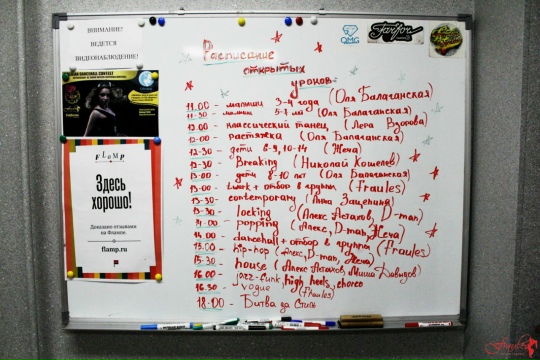 ВНИМАНИЕ!
ВЕДЕТСЯ
ВИДЕОНАБЛЮДЕНИЕ!
FLAMP
Здесь
хорошо!
Доказано отзывами
на Флампе.
flamp.ru
OMG
Расписание
открытых
уроков
11.00 - малыши 3-4 года (Оля Балаганская)
11-30 - малыши 5-7 лет (Оля Балаганская)
12.00 - классический танец (Лера Взорова)
12-00 - растяжка (Оля Балаганская)
12-30 - дети 6-9, 10-14 (Жеча)
12-30 - Breaking (Николай Кошелев)
13-00 - дети 8-10 лет (Оля Балаганская)
13-00 - twerk + отбор в группу (fraules)
13-30 - contemporary (Анна Зацепина)
13-30 - locking (Алекс Астахов, D-man)
14-00 - popping (Алекс, D-man, Жеча)
14.00 - dancehall + отбор в группы (fraules)
15.00 - hip-hop (Алекс, D-man, Жеча)
15-30 - house (Алекс Астахов, Миша Давидов)
16.00 - jazz-funk, high heels, choreo
16.30 - vogue (fraules)
18-00 - Битва за Стиль